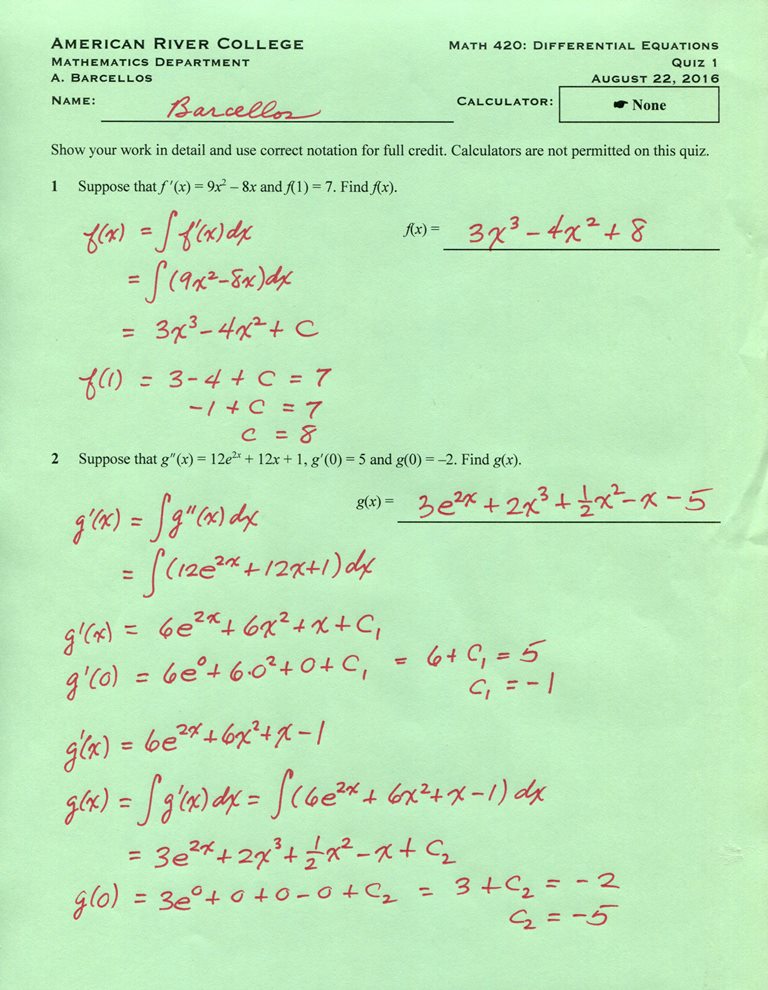 AMERICAN RIVER COLLEGE
MATHEMATICS DEPARTMENT
A. BARCELLOS
MATH 420: DIFFERENTIAL EQUATIONS
QUIZ 1
AUGUST 22, 2016
NAME: Barcellos
CALCULATOR: ☛ None
Show your work in detail and use correct notation for full credit. Calculators are not permitted on this quiz.
1 Suppose that f′(x) = 9x² – 8x and f(1) = 7. Find f(x).
f(x) = 3x³ – 4x² + 8
f(x) = ∫ f′(x) dx
= ∫ (9x² – 8x) dx
= 3x³ – 4x² + C
f(1) = 3 – 4 + C = 7
–1 + C = 7
C = 8
2 Suppose that g″(x) = 12e²ˣ + 12x + 1, g′(0) = 5 and g(0) = –2. Find g(x).
g(x) = 3e²ˣ + 2x³ + ½x² – x – 5
g′(x) = ∫ g″(x) dx
= ∫ (12e²ˣ + 12x + 1) dx
g′(x) = 6e²ˣ + 6x² + x + C₁
g′(0) = 6e⁰ + 6·0² + 0 + C₁ = 6 + C₁ = 5
C₁ = –1
g′(x) = 6e²ˣ + 6x² + x – 1
g(x) = ∫ g′(x) dx = ∫ (6e²ˣ + 6x² + x – 1) dx
= 3e²ˣ + 2x³ + ½x² – x + C₂
g(0) = 3e⁰ + 0 + 0 – 0 + C₂ = 3 + C₂ = –2
C₂ = –5